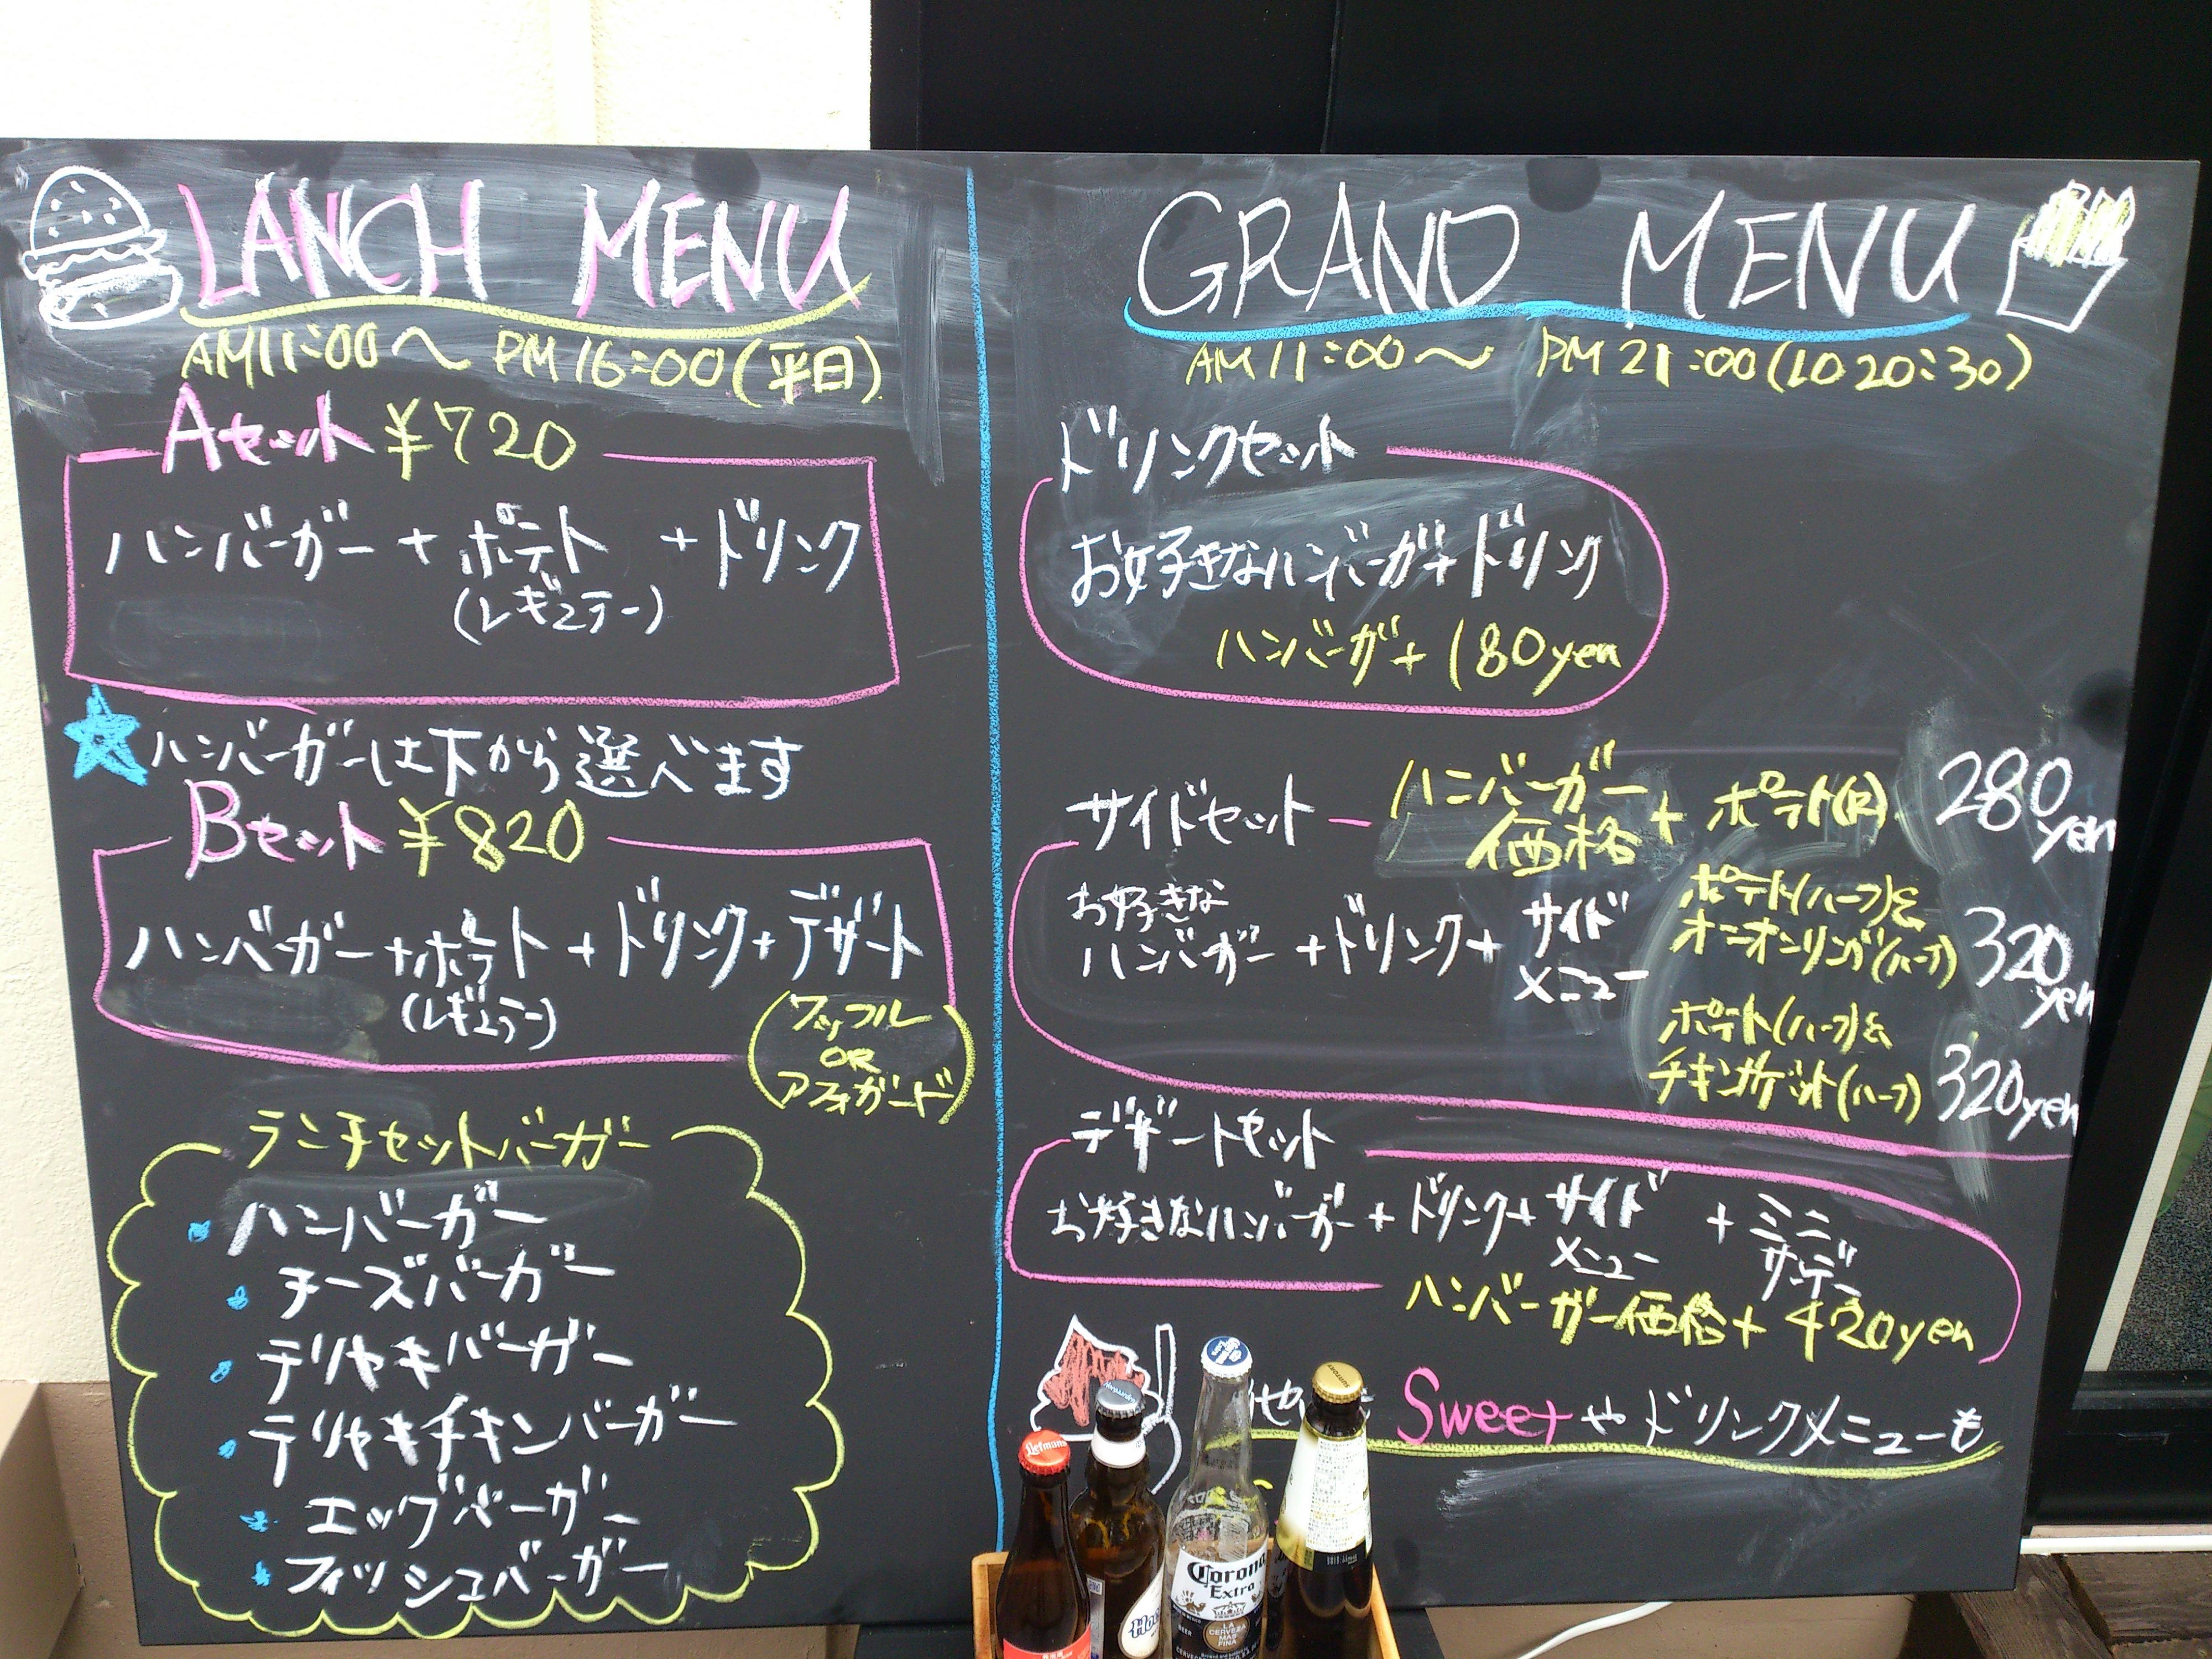 LANCH MENU
AM11:00～PM16:00(平日)
Aセット ¥720
ハンバーガー+ポテト+ドリンク
(レギュラー)
ハンバーガーは下から選べます
Bセット ¥820
ハンバーガー+ポテト+ドリンク+デザート
(レギュラー)
(ワッフル
OR
アフォガード)
ランチセットバーガー
ハンバーガー
チーズバーガー
テリヤキバーガー
テリヤキチキンバーガー
エッグバーガー
フィッシュバーガー
GRAND MENU
AM11:00～PM21:00(LO20:30)
ドリンクセット
お好きなハンバーガー+ドリンク
ハンバーガー+180yen
サイドセット
ハンバーガー
価格
+ポテト(R) 280yen
お好きな
ハンバーガー+ドリンク+サイド
メニュー
ポテト(ハーフ)&
オニオンリング(ハーフ) 320yen
ポテト(ハーフ)&
チキンナゲット(ハーフ) 320yen
デザートセット
お好きなハンバーガー+ドリンク+サイド
メニュー
+ミニ
サンデー
ハンバーガー価格+420yen
Sweetやドリンクメニューも
Liefmans
Corona
Extra
LA
CERVEZA
MAS
FINA